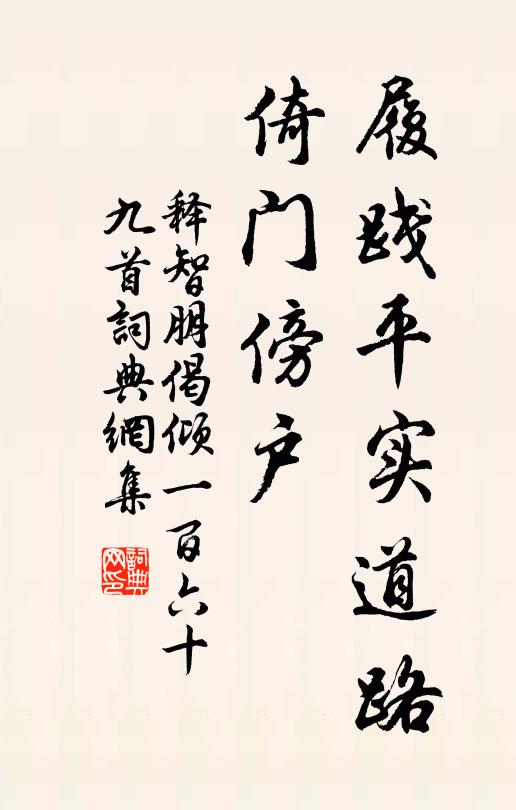 履践平实道路
倚门傍户
释智朋偈倾一百六十
九首詞典網集
詞典网印